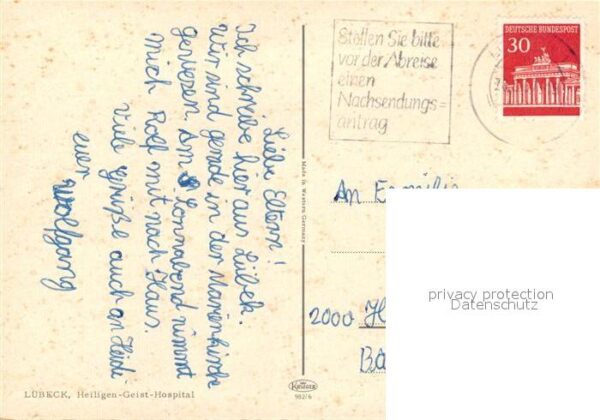 Liebe Eltern!
Ich schreibe hier aus Lübek.
Wir sind gerade in der Marienkirche
gewesen. Am Sonnabend nimmt
mich Rolf mit nach Haus.
Viele Grüße auch an Heidi
euer
Wolfgang
LÜBECK, Heiligen-Geist-Hospital
Made in Western Germany
Krüger
982/6
Stellen Sie bitte
vor der Abreise
einen
Nachsendungs=
antrag
DEUTSCHE BUNDESPOST
30
An Familie
2000 H
privacy protection
Datenschutz